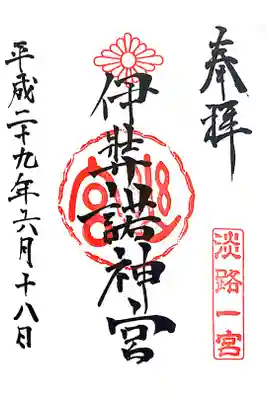 奉拝
淡路一宮
伊弉諾神宮
平成二十九年六月十八日